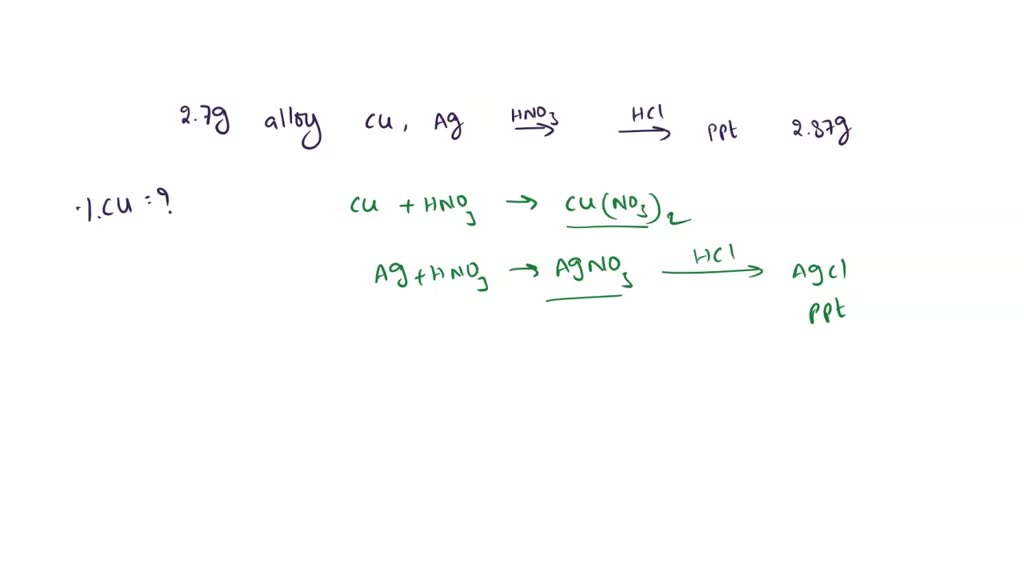 2.7g alloy Cu, Ag HNO3 → HCl → ppt 2.87g
·/.Cu = ?
Cu + HNO3 → Cu(NO3)2
Ag + HNO3 → AgNO3 HCl → AgCl
ppt